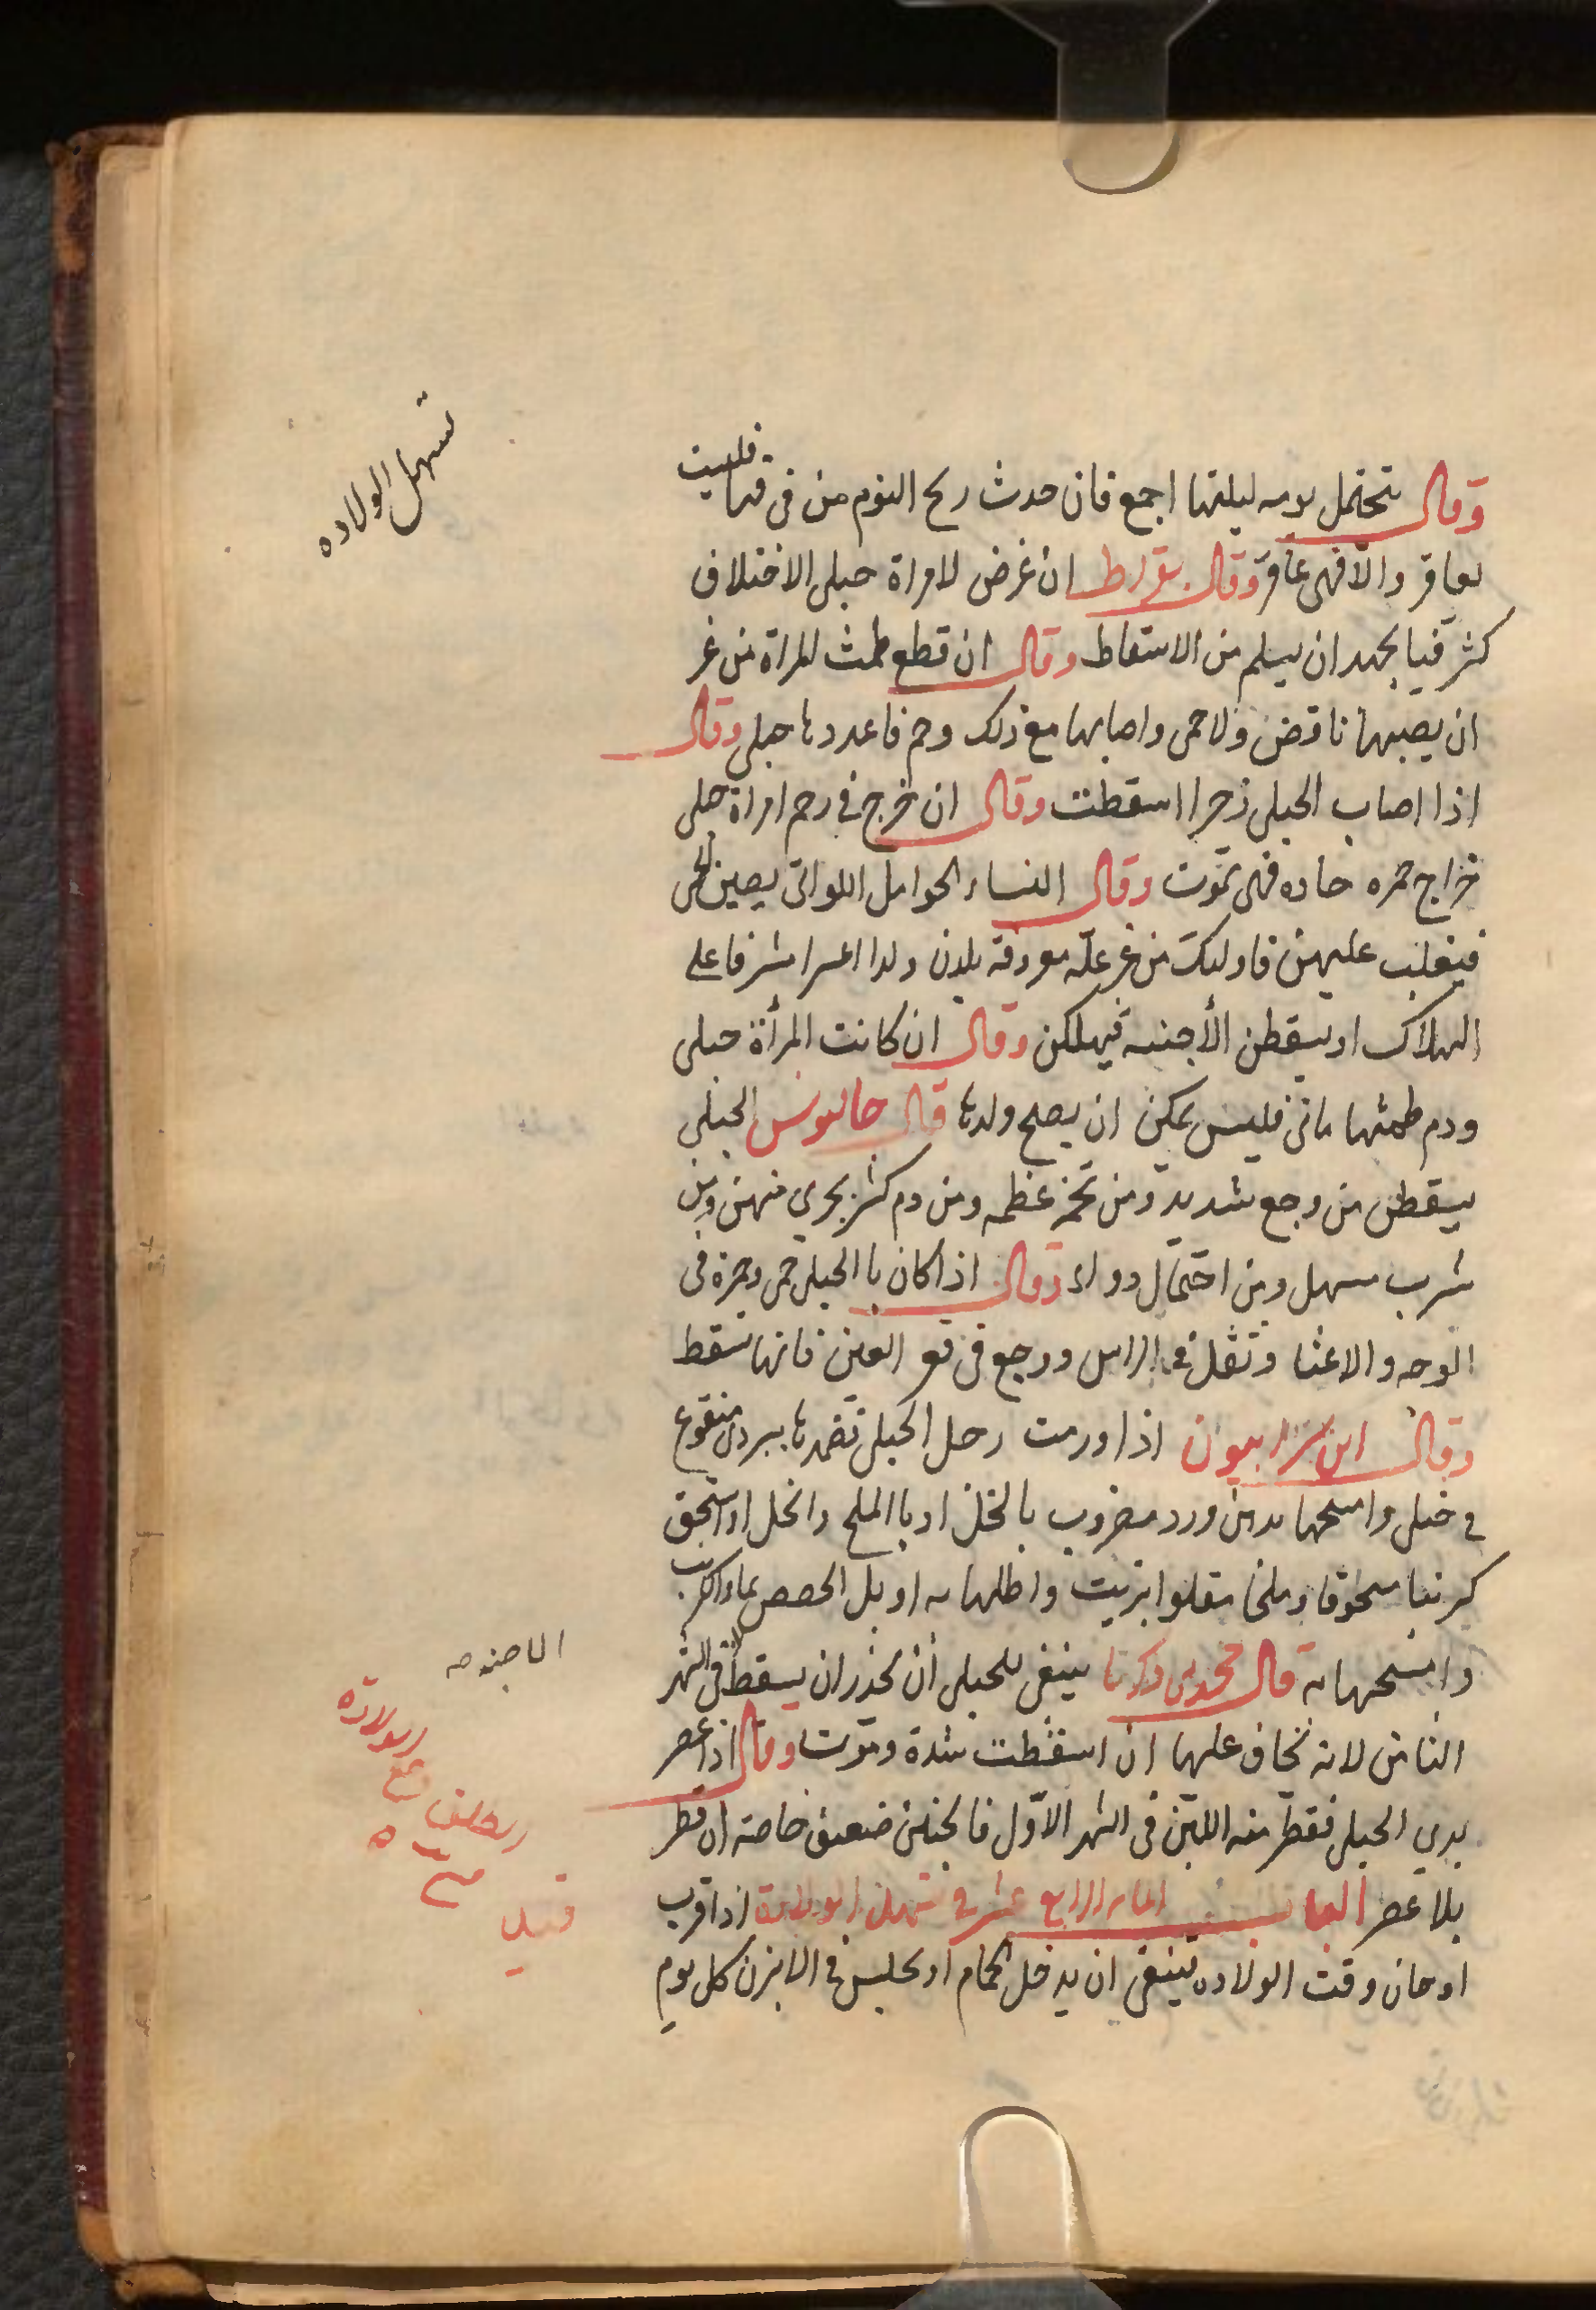 تسهل الولاده
وقال تحتمل يومه ليلتها اجمع فان حدث ريح الثوم من فى فيها فليست
بعاقر والا فهى عاقر وقال بقراط ان عرض لامراة حبلى الاختلاف
كثر فبا بجهد ان يسلم من الاسقاط وقال ان قطع طمث المراة من غر
ان يصيبها نافض ولا حمى واصابها مع ذلك وحم فاعددها حبلى وقال
اذا اصاب الحبلى زحرا اسقطت وقال ان خرج فى رحم امراة حبلى
خراج حمره حاده فهى تموت وقال النساء الحوامل اللواتى يصيبن الحمى
فيغلب عليهن فاوليك من غير علة معروفة يلدن ولدا اعسرا مشرفا على
الهلاك او يسقطن الأجنه فيهلكن وقال ان كانت المرأة حبلى
ودم طمثها ماتى فليس يمكن ان يصح ولدها قال جالينوس الحبلى
يسقطن من وجع شديد ومن تخمة عظمه ومن دم كثر يجري منهن ومن
شرب مسهل ومن احتمال دواء وقال اذا كان با الحبلى حمى وحمرة فى
الوجه والاعثا وثقل فى الراس ووجع فى قعر العين فانها تسقط
وقال ابن سرابيون اذا ورمت رحل الحبلى فضمدها ببردى منقوع
فى خل وامسحها بدهن ورد مضروب بالخل او با الملح والخل او اسحق
كرنبا مسحوقا وملحا مقلوا بزيت واطلها به او بل الحمص بماء الكرنب
وامسحها به قال محمد بن زكريا ينبغى للحبلى أن تحذر ان يسقط فى الشهر
الثامن لانه يخاف عليها ان اسقطت شدة وموت وقال اذا عصر
يدي الحبلى فقطر منه اللبن فى الشهر الاول فالجنين ضعيف خاصة ان قطر
بلا عصر الباب الرابع عشر فى تسهل الولادة اذا قرب
او حان وقت الولاده ينبغى ان يدخل الحمام او يجلس فى الابزن كل يوم
الاجنه